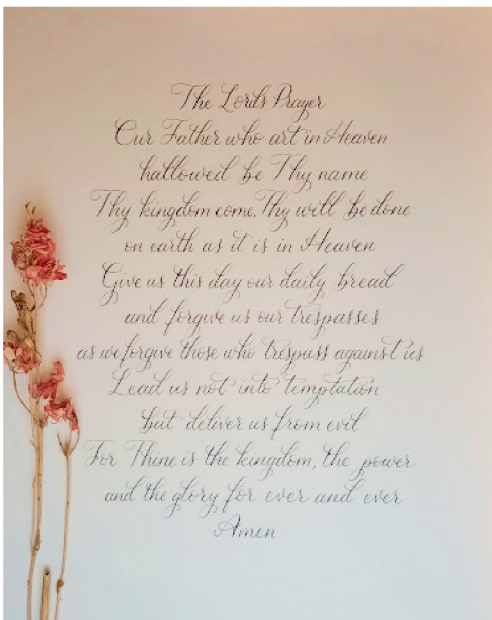 The Lords Prayer
Our Father who art in Heaven
hallowed be Thy name
Thy kingdom come, Thy will be done
on earth as it is in Heaven
Give us this day our daily bread
and forgive us our trespasses
as we forgive those who trespass against us
Lead us not into temptation
but deliver us from evil
For Thine is the kingdom, the power
and the glory for ever and ever
Amen